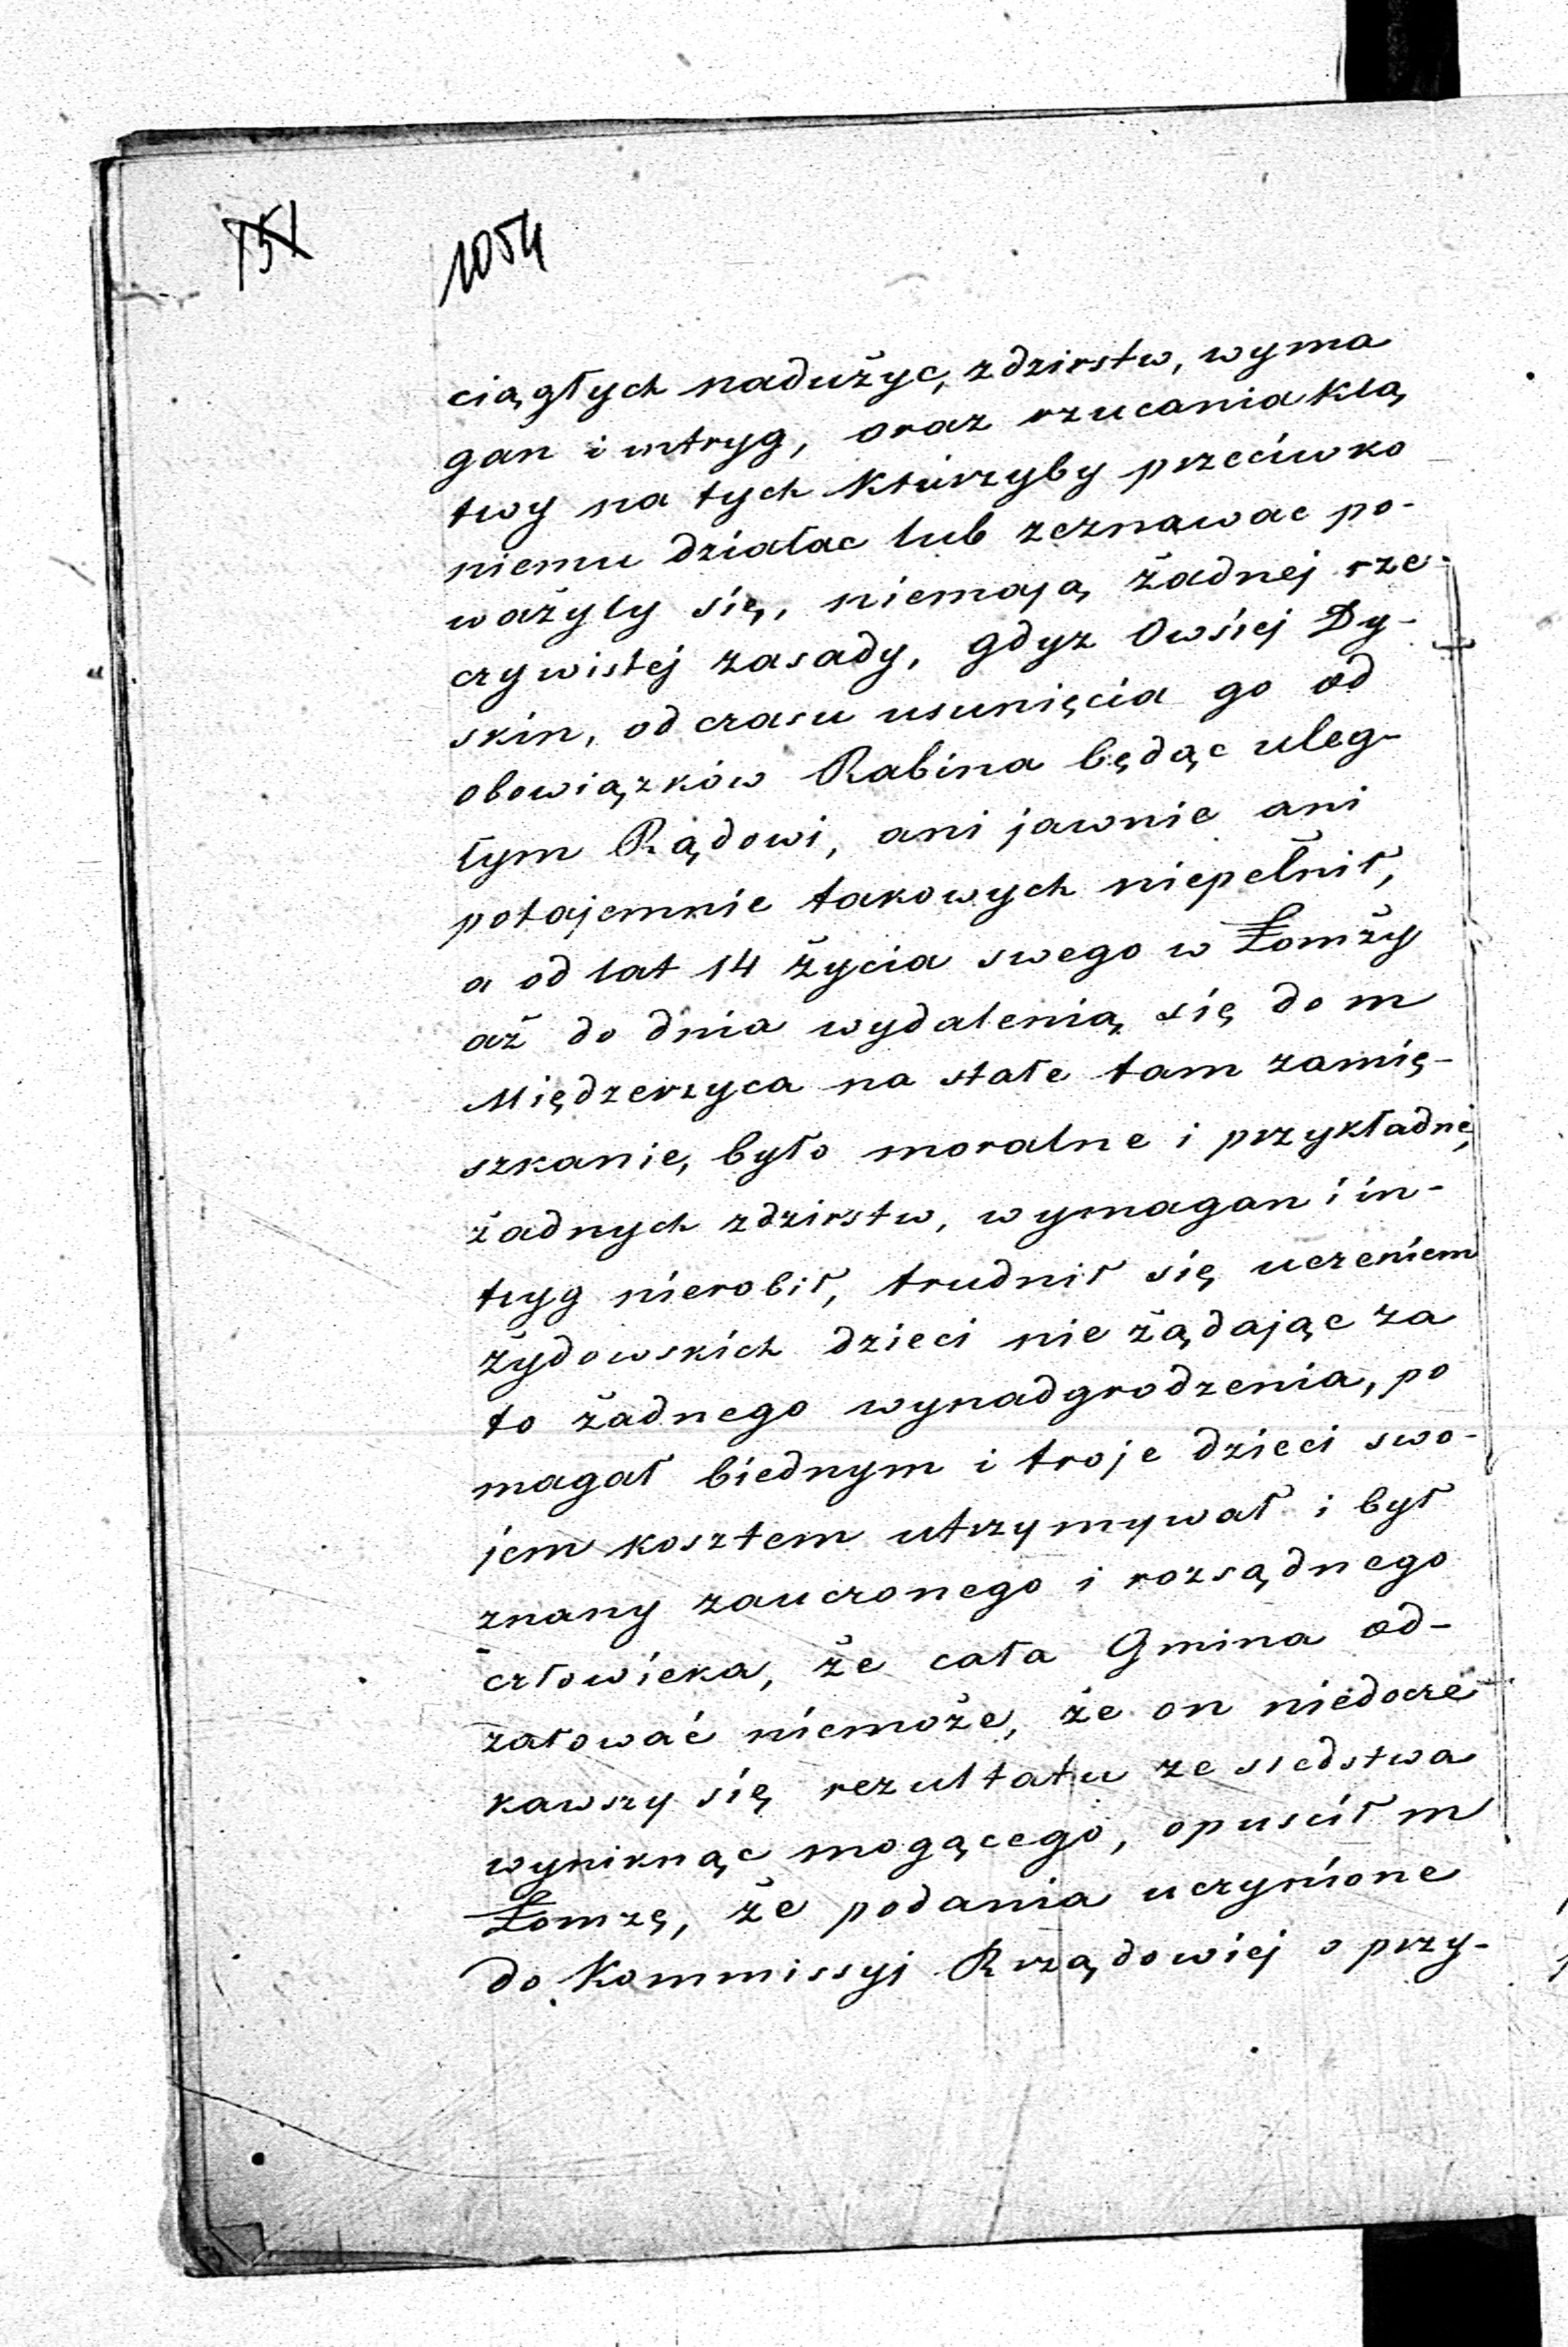 151 1054
ciągłych nadużyc, zdzirstw, wyma
gan i intryg, oraz rzucania klą
twy na tych którzyby przeciwko
niemu działac lub zeznawac po-
ważyly się, niemają żadnej rze-
czywistéj zasady, gdyz Owsiej Dy-
skin, od czasu usunięcia go od
obowiązków Rabina będąc uleg-
łym Rądowi, ani jawnie ani
potajemnie takowych niepełnił,
a od lat 14 życia swego w Łomży
aż do dnia wydalenią się do m
Międzerzyca na stałe tam zamię-
szkanie, było moralne i przykładne,
żadnych zdzirstw, wymagan i in-
tryg nierobił, trudnił się uczeniem
żydowskich dzieci nie żądając za
to żadnego wynadgrodzenia, po
magał biednym i troje dzieci swo-
jem kosztem utrzymywał i był
znany zauczonego i rozsądnego
człowieka, że cała Gmina od-
załować niemoże, że on niedocze
kawszy się rezultatu ze sledstwa
wyniknąc mogącego, opuscił m
Łomzę, że podania uczynione
do Kommissyi Rządowiej o przy-